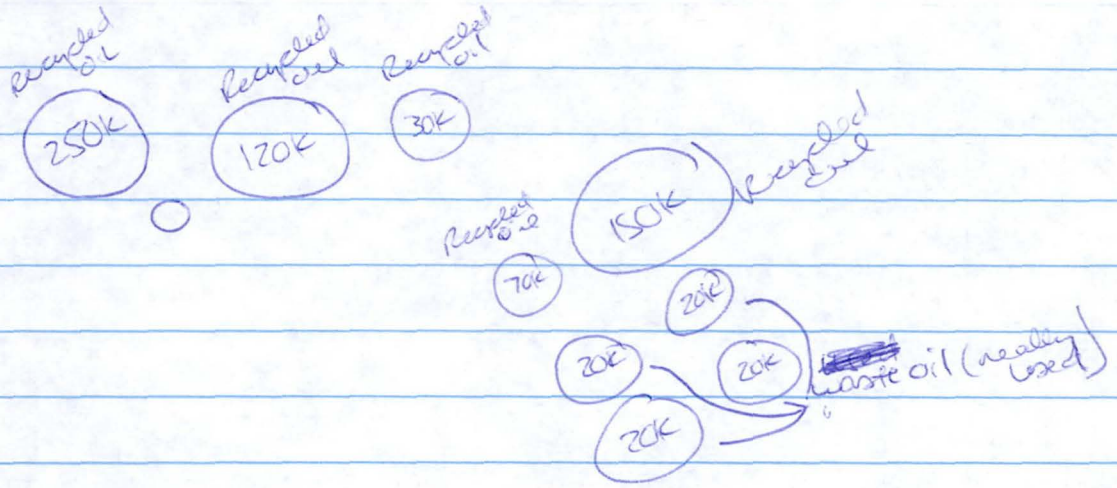 Recycled
oil
250K
Recycled
oil
120K
Recycled
oil
30K
Recycled
oil
150K
Recycled
oil
70K
20K
20K
20K
20K
waste oil (really
used)